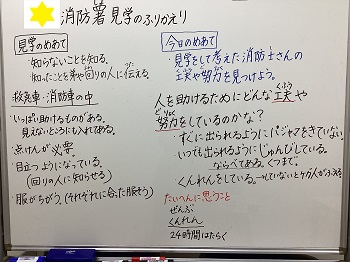 消防署見学のふりかえり
見学のめあて
・知らないことを知る。
・知ったことを弟や回りの人に伝える。
救急車・消防車の中
・いっぱい助けるものがある。
見えないところにも入れてある。
・点けんが必要
・目立つようになっている。
(回りの人に知らせる)
・服がちがう。(それぞれに合った服そう)
今日のめあて
・見学をして考えた消防士さんの
工夫や努力を見つけよう。
人を助けるためにどんな工夫や
くふう
どりょく
努力をしているのかな?
・すぐに出られるようにパジャマをきていない
・いつでも出られるようにじゅんびしている。
ならべてある。くつまで。
・くんれんをしている。
たいへんに思うこと
ぜんぶ
くんれん
24時間はたらく